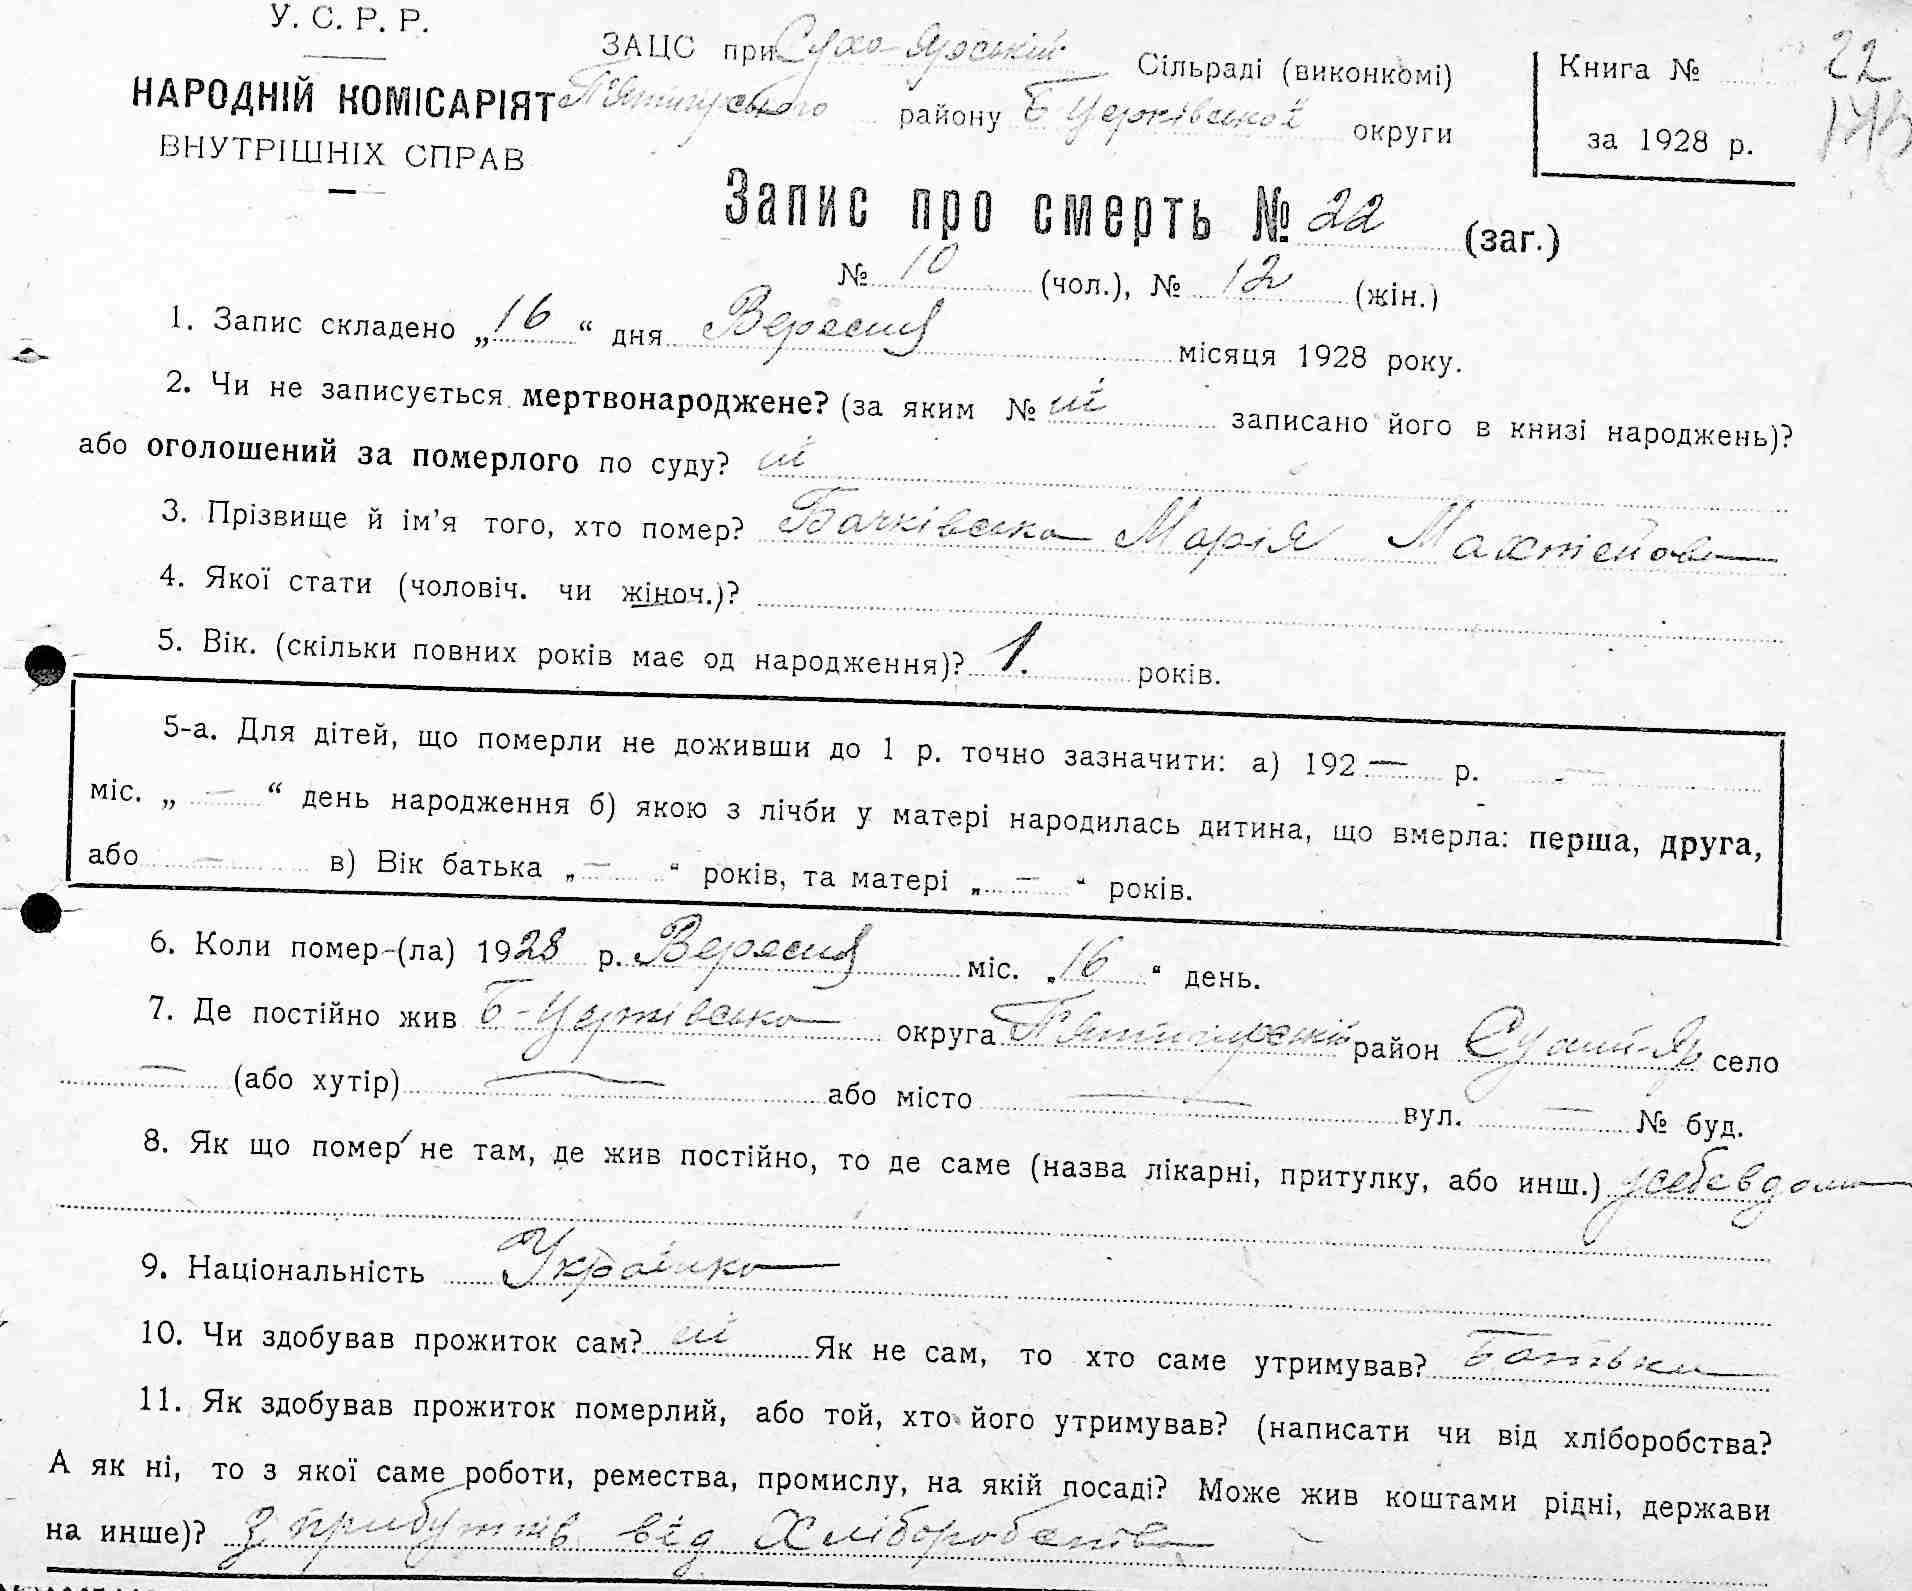 У. С. Р. Р.
НАРОДНІЙ КОМІСАРІЯТ
ВНУТРІШНІХ СПРАВ
ЗАЦС при Сухо-Ярській Сільраді (виконкомі)
П'ятигірського району Б Церківської округи
Книга № 22
за 1928 р.
Запис про смерть № 22 (заг.)
№ 10 (чол.), № 12 (жін.)
1. Запис складено „16“ дня Вересня місяця 1928 року.
2. Чи не записується мертвонароджене? (за яким № ні записано його в книзі народжень)?
або оголошений за померлого по суду? ні
3. Прізвище й ім'я того, хто помер? Бачківська Марія
4. Якої стати (чоловіч. чи жіноч.)?
5. Вік. (скільки повних років має од народження)? 1. років.
5-а. Для дітей, що померли не доживши до 1 р. точно зазначити: а) 192 — р. —
міс. „ — “ день народження б) якою з лічби у матері народилась дитина, що вмерла: перша, друга,
або — в) Вік батька „ — “ років, та матері „ — “ років.
6. Коли помер-(ла) 1928 р. Вересня міс. „16“ день.
7. Де постійно жив Б-Церківська округа П'ятигірський район Сухий-Яр село
— (або хутір) — або місто — вул. — № буд.
8. Як що помер не там, де жив постійно, то де саме (назва лікарні, притулку, або инш.) у себе вдома
9. Національність Українка
10. Чи здобував прожиток сам? ні Як не сам, то хто саме утримував? Батьки
11. Як здобував прожиток померлий, або той, хто його утримував? (написати чи від хліборобства?
А як ні, то з якої саме роботи, ремества, промислу, на якій посаді? Може жив коштами рідні, держави
на инше)? З прибутків від Хліборобства